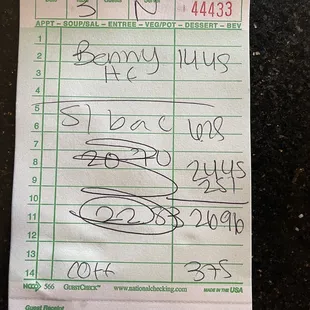 3 N 44433
APPT - SOUP/SAL - ENTREE - VEG/POT - DESSERT - BEV
1
2 Benny 1445
3 HC
4
5
6 SI bac 628
7
8 2070 2445
9 251
10
11 2283 2696
12
13
14 COFF 375
NCCO 566 GUESTCHECK™ www.nationalchecking.com MADE IN THE USA
Guest Receipt